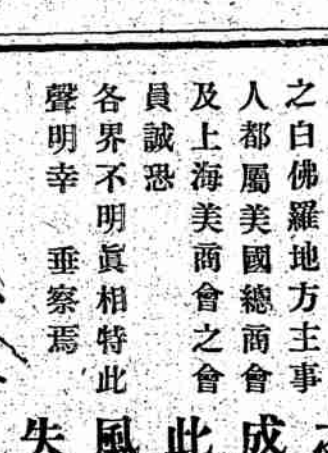 之白佛羅地方主事
人都屬美國總商會
及上海美商會之會
員誠恐
各界不明眞相特此
聲明幸　垂察焉
成
此
風
失